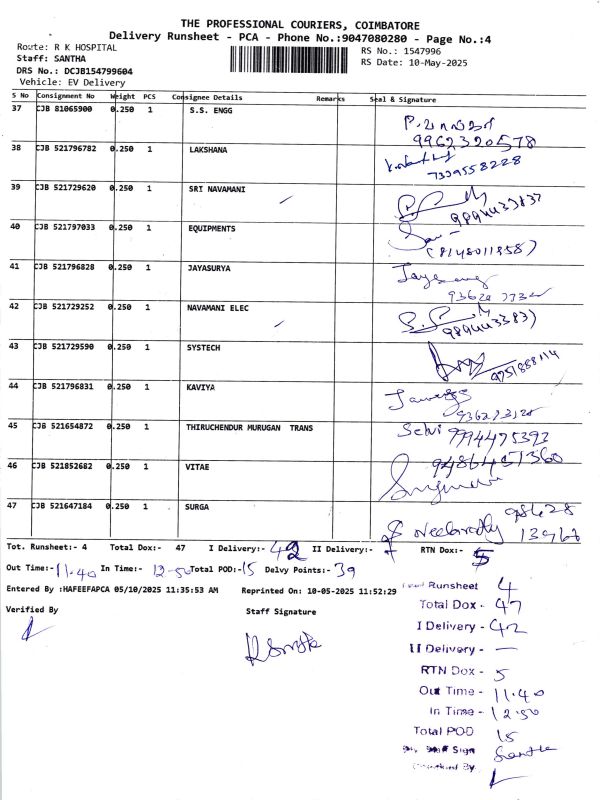 THE PROFESSIONAL COURIERS, COIMBATORE
Delivery Runsheet - PCA - Phone No.:9047080280 - Page No.:4
Route: R K HOSPITAL
Staff: SANTHA
DRS No.: DCJB154799604
Vehicle: EV Delivery
RS No.: 1547996
RS Date: 10-May-2025
S No Consignment No Weight PCS Consignee Details Remarks Seal & Signature
37 CJB 81065900 0.250 1 S.S. ENGG
9962320578
38 CJB 521796782 0.250 1 LAKSHANA
7339558228
39 CJB 521729620 0.250 1 SRI NAVAMANI
9894433837
40 CJB 521797033 0.250 1 EQUIPMENTS
(8148011858)
41 CJB 521796828 0.250 1 JAYASURYA
42 CJB 521729252 0.250 1 NAVAMANI ELEC
43 CJB 521729590 0.250 1 SYSTECH
9751888114
44 CJB 521796831 0.250 1 KAVIYA
45 CJB 521654872 0.250 1 THIRUCHENDUR MURUGAN TRANS
Selvi 9994475392
46 CJB 521852682 0.250 1 VITAE
9486457360
47 CJB 521647184 0.250 1 SURGA
Tot. Runsheet:- 4 Total Dox:- 47 I Delivery:- 42 II Delivery:- RTN Dox:- 5
Out Time:- 11.40 In Time:- 12-50 Total POD:- 15 Delvy Points:- 39
Entered By :HAFEEFAPCA 05/10/2025 11:35:53 AM Reprinted On: 10-05-2025 11:52:29
Verified By Staff Signature
Runsheet 4
Total Dox - 47
I Delivery - 42
II Delivery - —
RTN Dox - 5
Out Time - 11.40
In Time - 12.50
Total POD 15
Sign Santha
By